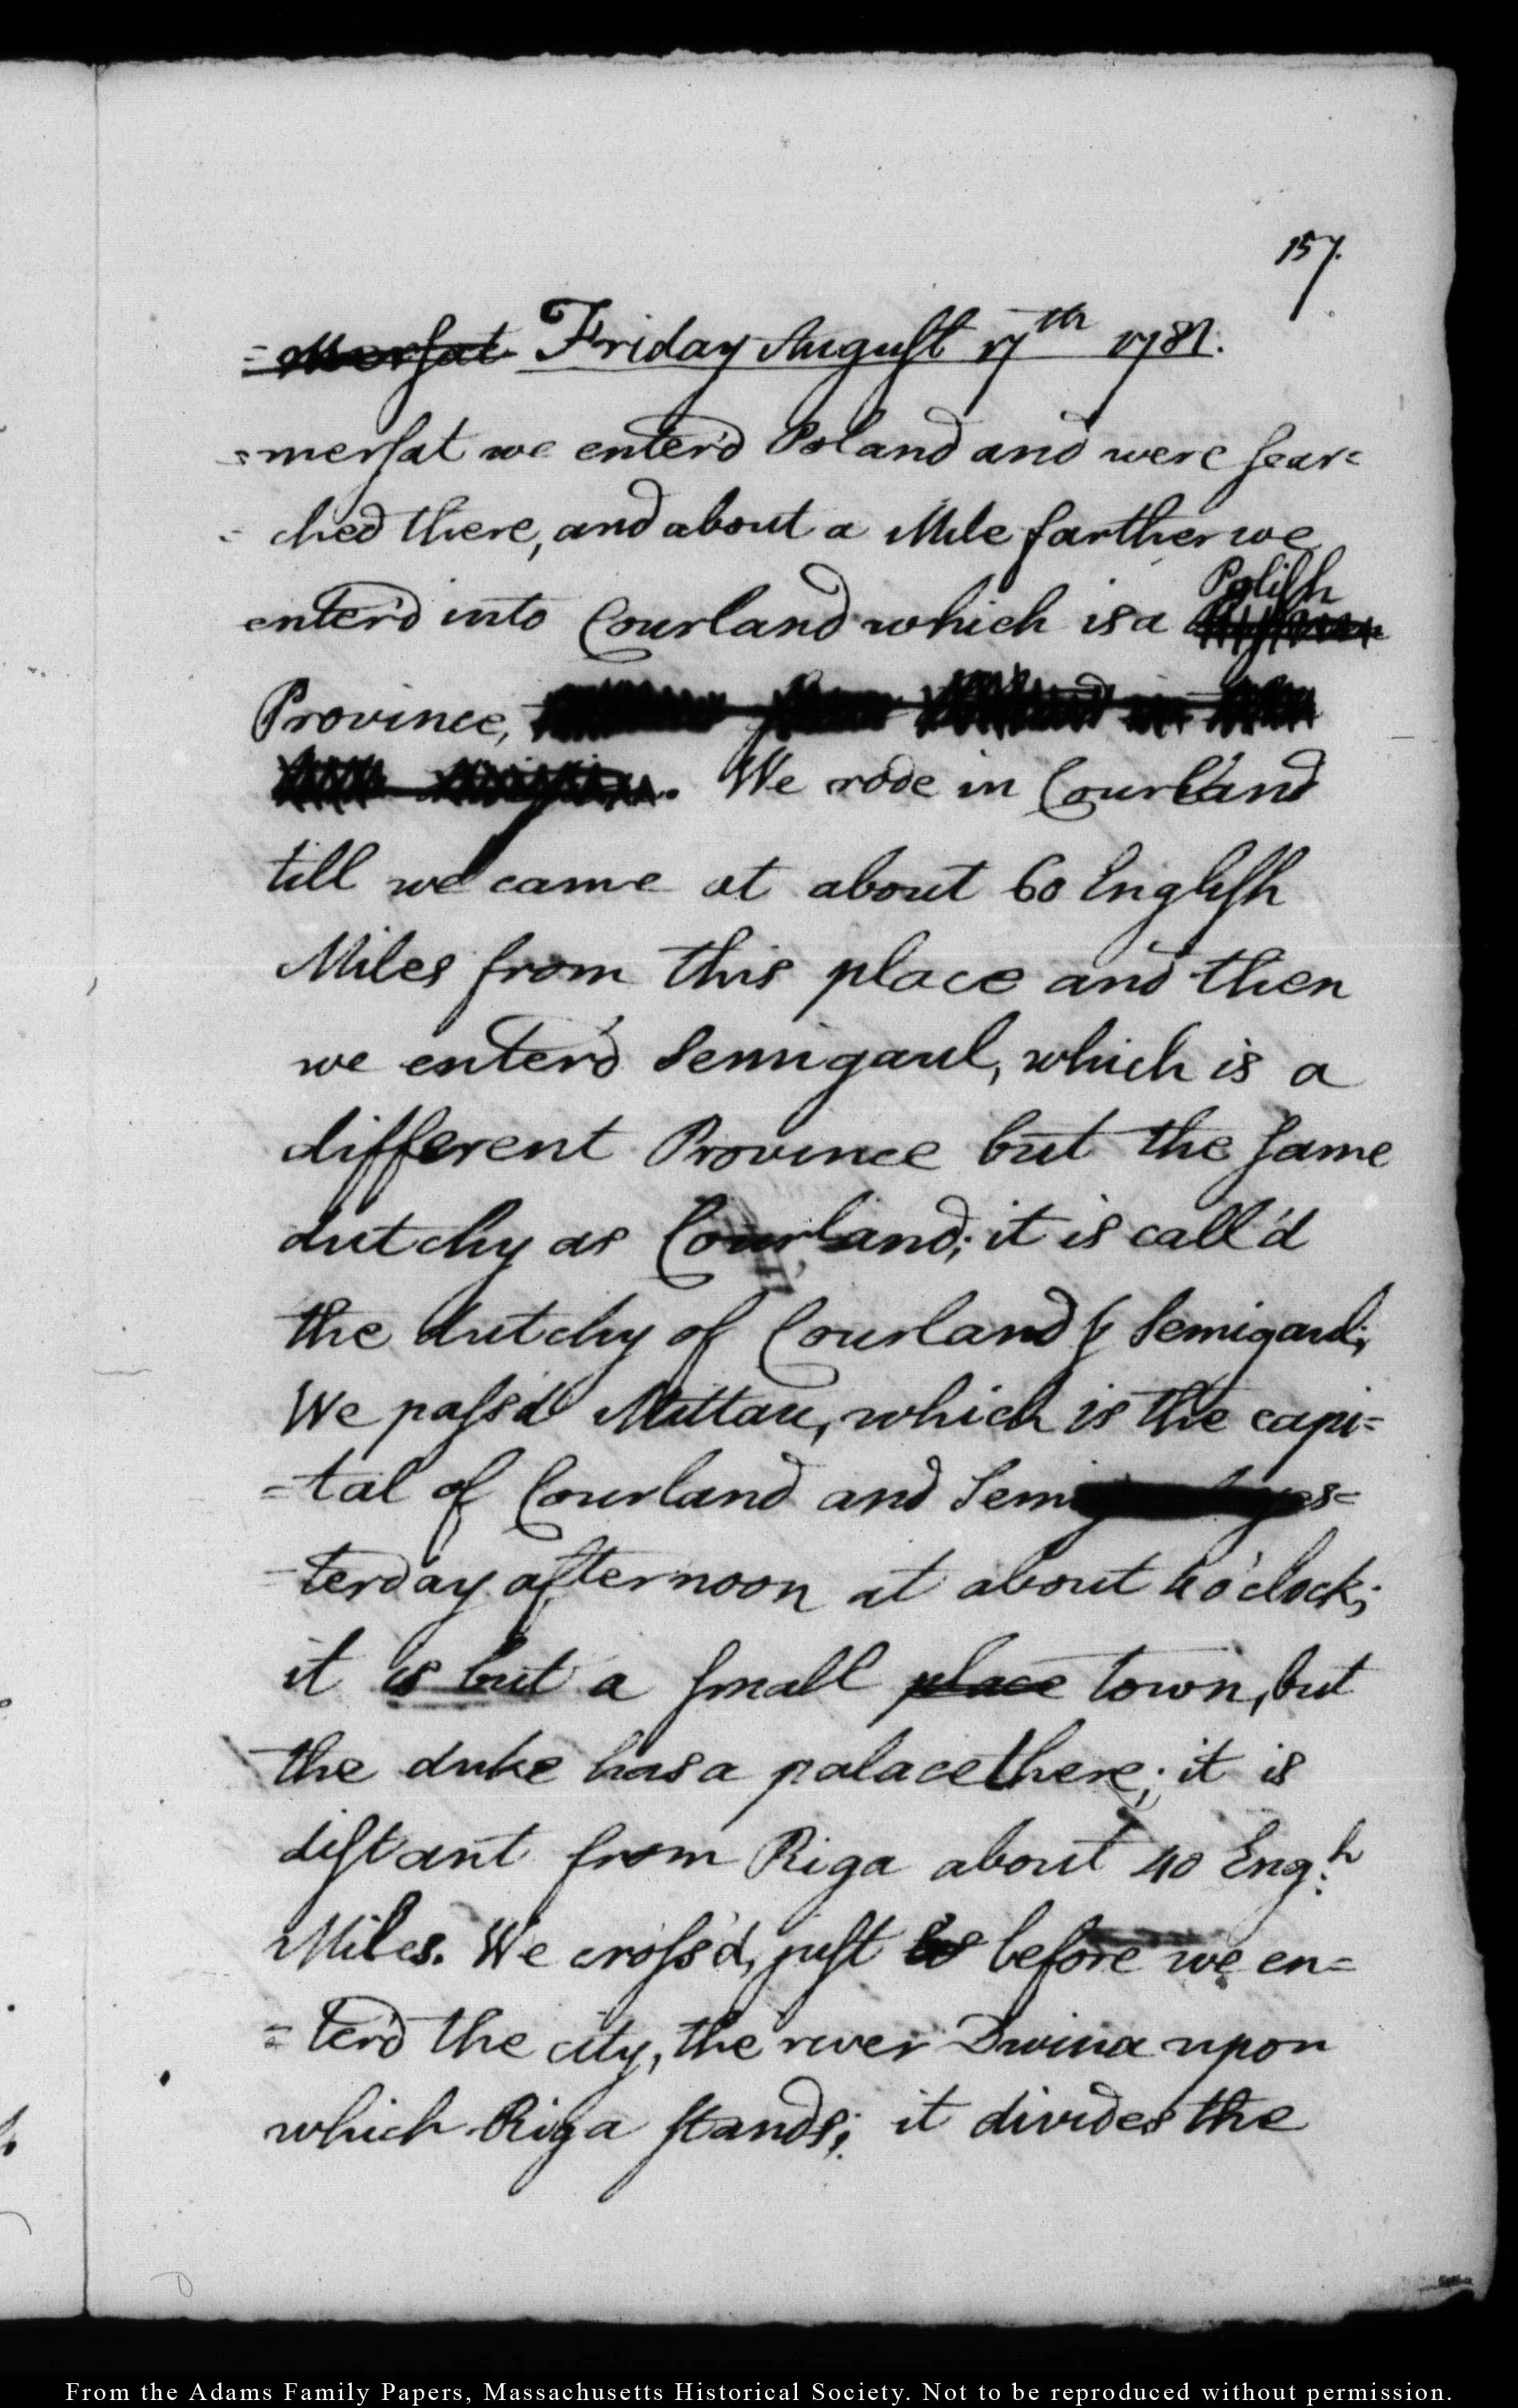 157.
=mersat Friday August 17th 1781.
=mersat we enter'd Poland and were sear=
=ched there, and about a Mile farther we
Polish
enter'd into Courland which is a
Province,
. We rode in Courland
till we came at about 60 English
Miles from this place and then
we enter'd Semigaul, which is a
different Province but the same
dutchy as Courland; it is call'd
the dutchy of Courland & Semigaul;
We pass'd Mittau, which is the capi=
=tal of Courland and Semigaul yes=
=terday afternoon at about 4 o'clock;
it is but a small place town, but
the duke has a palace there; it is
distant from Riga about 40 Engh
Miles. We cross'd, just before we en=
=ter'd the city, the river Dwina upon
which Riga stands; it divides the
From the Adams Family Papers, Massachusetts Historical Society. Not to be reproduced without permission.